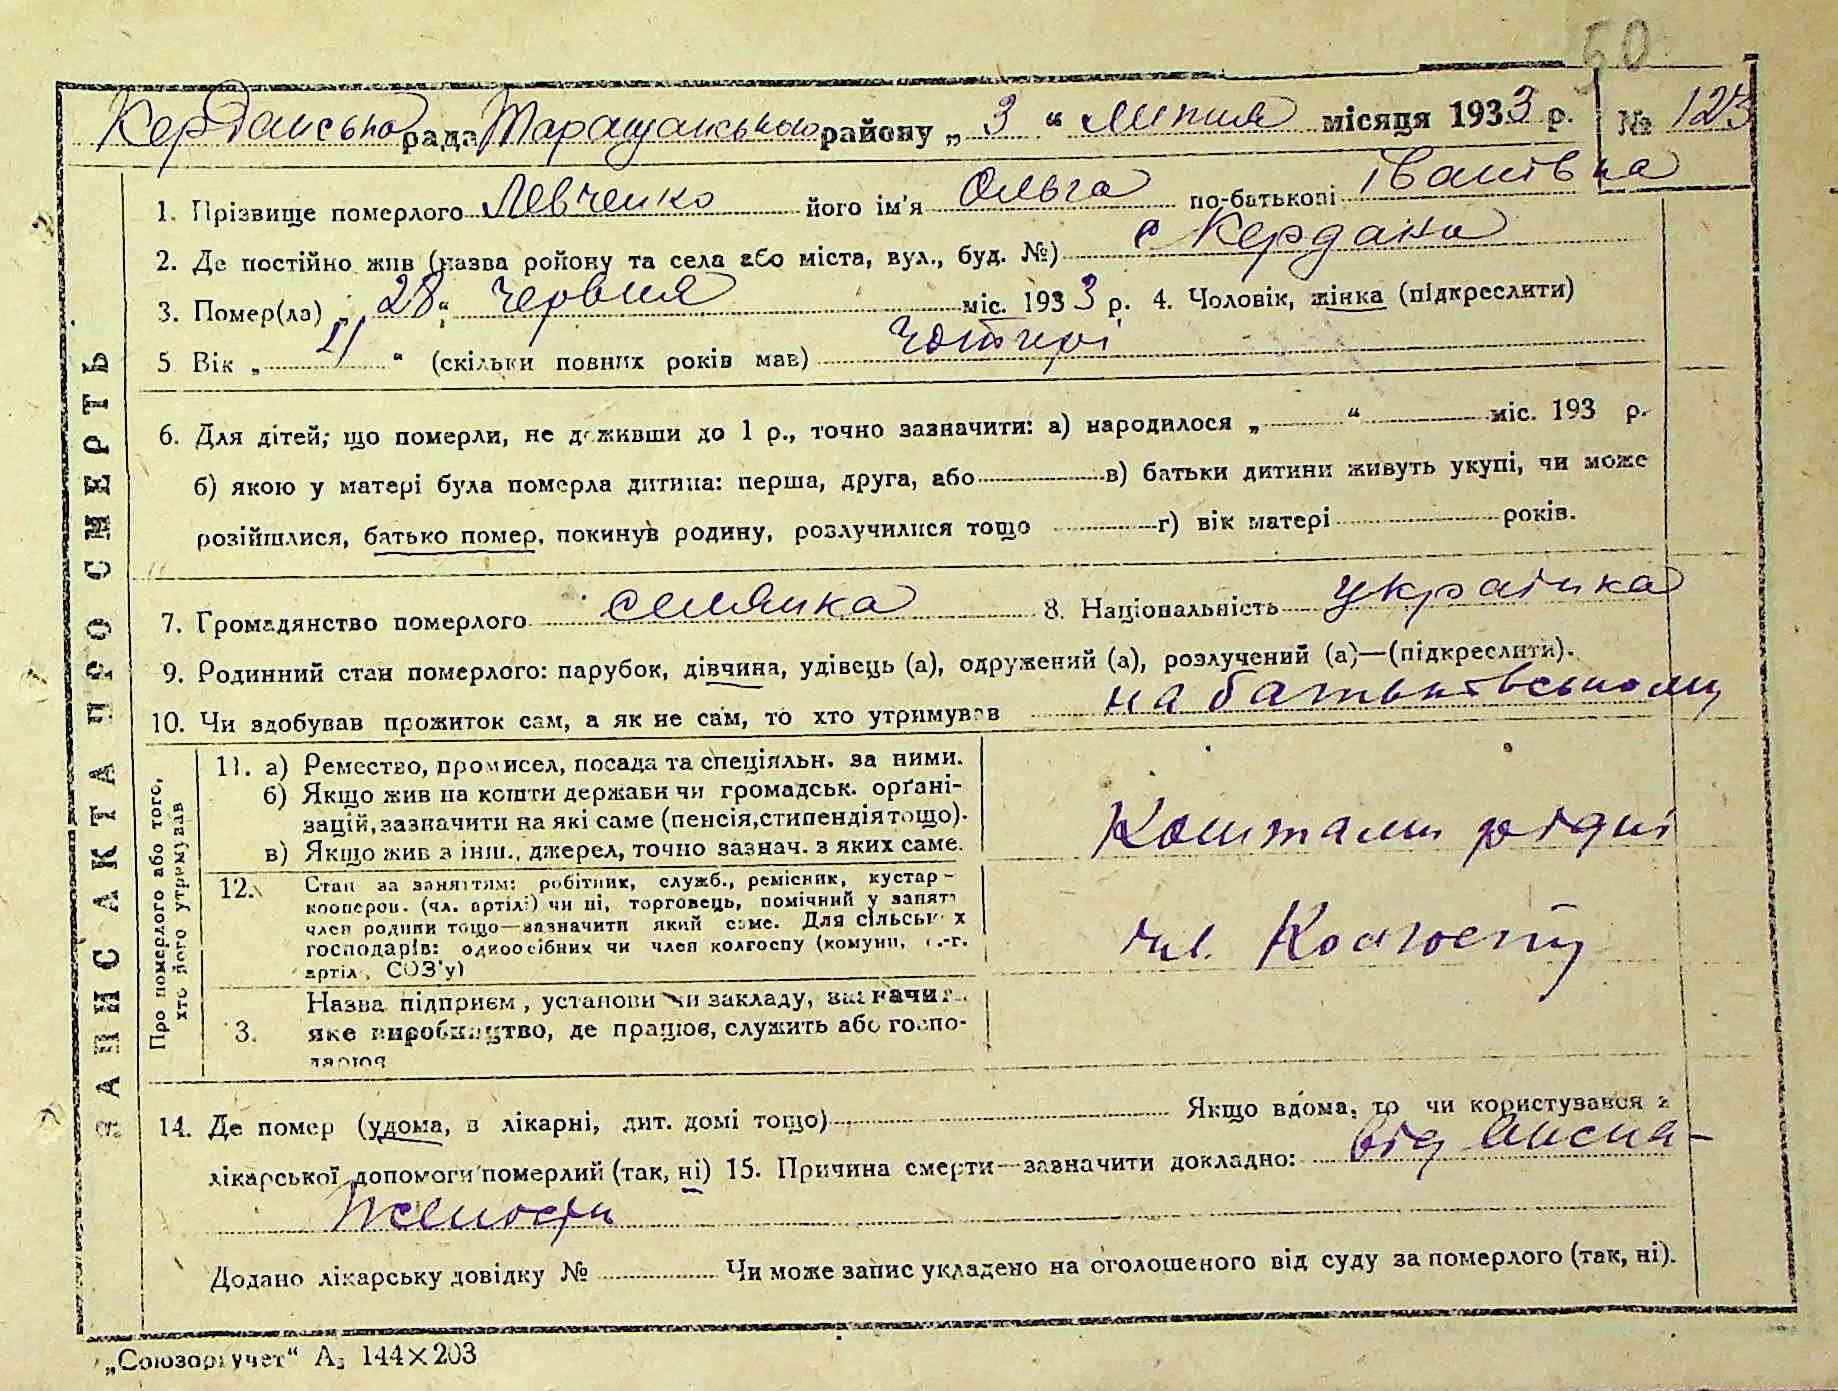 60
Керданська рада Таращанського району „ 3 “ липня місяця 1933 р. № 123
1. Прізвище померлого Левченко його ім'я Ольга по-батькові Іванівна
2. Де постійно жив (назва ройону та села або міста, вул., буд. №) с Кердана
3. Помер(ла) „ 28 “ червня міс. 1933 р. 4. Чоловік, жінка (підкреслити)
5 Вік „ 4 “ (скільки повних років мав) чотирі
6. Для дітей, що померли, не доживши до 1 р., точно зазначити: а) народилося „ “ міс. 193 р.
б) якою у матері була померла дитина: перша, друга, або в) батьки дитини живуть укупі, чи може
розійшлися, батько помер, покинув родину, розлучилися тощо г) вік матері років.
7. Громадянство померлого селянка 8. Національність українка
9. Родинний стан померлого: парубок, дівчина, удівець (а), одружений (а), розлучений (а)—(підкреслити).
10. Чи здобував прожиток сам, а як не сам, то хто утримував на батьківському
11. а) Ремество, промисел, посада та спеціяльн. за ними.
б) Якщо жив на кошти держави чи громадськ. орґані-
зацій, зазначити на які саме (пенсія, стипендія тощо).
в) Якщо жив з інш., джерел, точно зазнач. з яких саме.
Коштами рідні
12. Стан за заняттям: робітник, служб., ремісник, кустар-
кооперов. (чл. артілі) чи ні, торговець, помічний у занятт
член родини тощо—зазначити який саме. Для сільськ х
господарів: одноосібних чи член колгоспу (комуни, с.-г.
артіл, СОЗ'у)
чл. Колгоспу
3. Назва підприєм, установи чи закладу, зазначит
яке виробництво, де працює, служить або госпо-
дарює
14. Де помер (удома, в лікарні, дит. домі тощо) Якщо вдома, то чи користувався з
лікарської допомоги померлий (так, ні) 15. Причина смерти—зазначити докладно: від висна-
жености
Додано лікарську довідку № Чи може запис укладено на оголошеного від суду за померлого (так, ні).
„Союзоргучет“ А5 144×203
ЗАПИС АКТА ПРО СМЕРТЬ
Про померлого або того,
хто його утримував